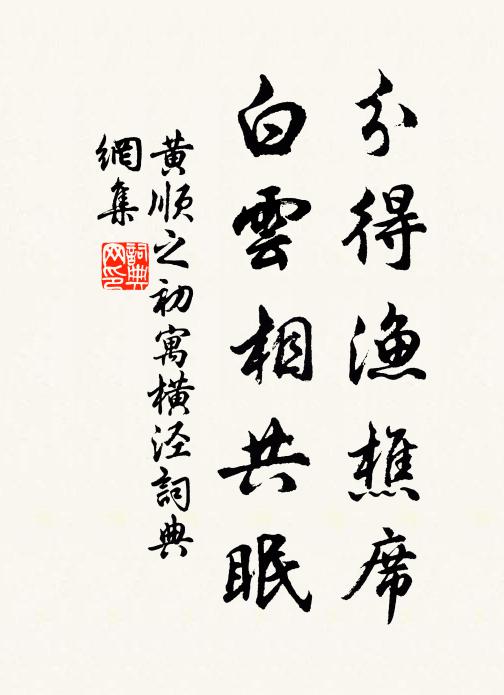 分得漁樵席
白雲相共眠
黃順之初寓橫涇詞典
網集
詞典
网印